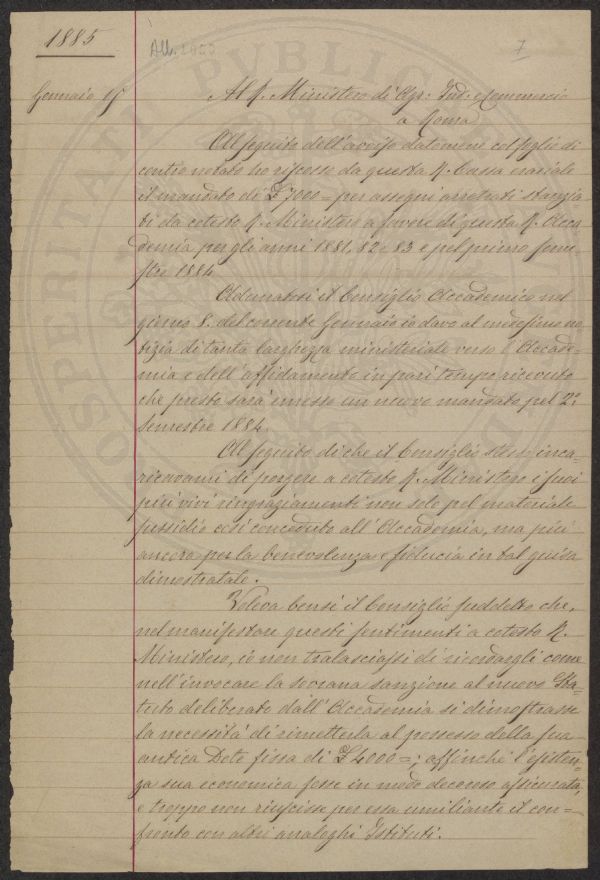 1885
7
Gennaio 15
Al R. Ministero di Agr: Ind: e Commercio
a Roma
Al seguito dell'avviso datomene col foglio di
contro notato ho riscosso da questa R. Cassa erariale
il mandato di £ 7000= per assegni arretrati stanzia
ti da cotesto R. Ministero a favore di questa R. Acca
demia per gli anni 1881, 82 e 83 e pel primo seme
stre 1884.
Adunatosi il Consiglio Accademico nel
giorno 8. del corrente Gennaio io davo al medesimo no
tizia di tanta larghezza ministeriale verso l'Accade-
mia e dell'affidamento in pari tempo ricevuto
che presto sarà emesso un nuovo mandato pel 2º
Semestre 1884.
Al seguito di che il Consiglio stesso inca-
ricavami di porgere a cotesto R. Ministero i suoi
più vivi ringraziamenti non solo pel materiale
sussidio così conceduto all'Accademia, ma più
ancora per la benevolenza e fiducia in tal guisa
dimostratale.
Voleva bensì il Consiglio suddetto che,
nel manifestare questi sentimenti a cotesto R.
Ministero, io non tralasciassi di ricordargli come
nell'invocare la sovrana sanzione al nuovo Sta-
tuto deliberato dall'Accademia si dimostrasse
la necessità di rimetterla al possesso della sua
antica Dote fissa di £ 4000=; affinchè l'esisten-
za sua economica fosse in modo decoroso assicurata,
e troppo non riuscisse per essa umiliante il con=
fronto con altri analoghi Istituti.
PROSPERITATI PUBLICAE